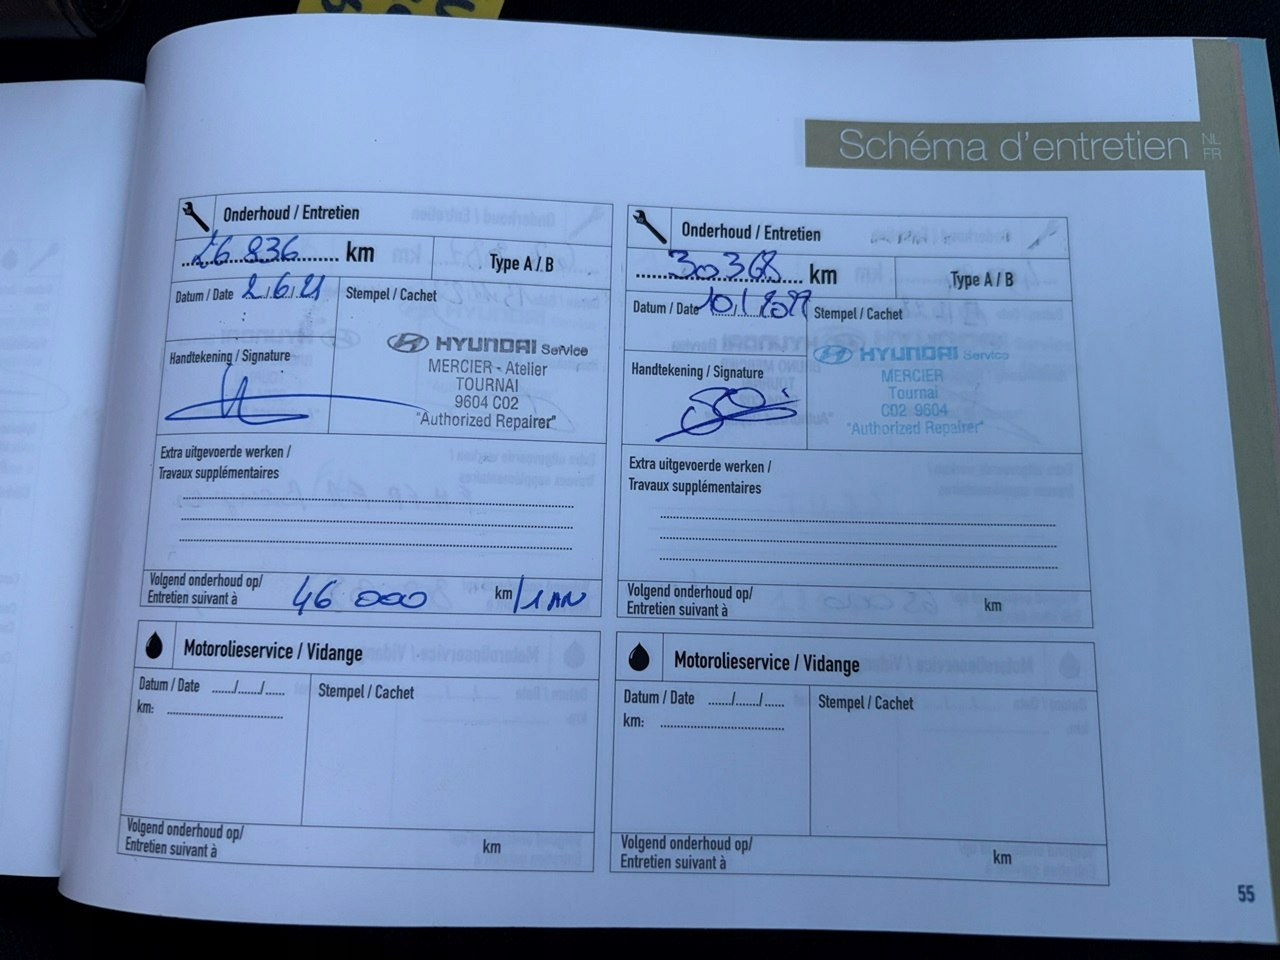 Schéma d'entretien
NL
FR
Onderhoud / Entretien
26.836 km
Type A / B
Datum / Date 2/6/21
Stempel / Cachet
Handtekening / Signature
HYUNDAI Service
MERCIER - Atelier
TOURNAI
9604 C02
"Authorized Repairer"
Extra uitgevoerde werken /
Travaux supplémentaires
Volgend onderhoud op/
Entretien suivant à
46 000 km / 1 AN
Motorolieservice / Vidange
Datum / Date ....../....../......
km:
Stempel / Cachet
Volgend onderhoud op/
Entretien suivant à
km
Onderhoud / Entretien
30368 km
Type A / B
Datum / Date
Stempel / Cachet
Handtekening / Signature
HYUNDAI Service
MERCIER
Tournai
C02 9604
"Authorized Repairer"
Extra uitgevoerde werken /
Travaux supplémentaires
Volgend onderhoud op/
Entretien suivant à
km
Motorolieservice / Vidange
Datum / Date ....../....../......
km:
Stempel / Cachet
Volgend onderhoud op/
Entretien suivant à
km
55